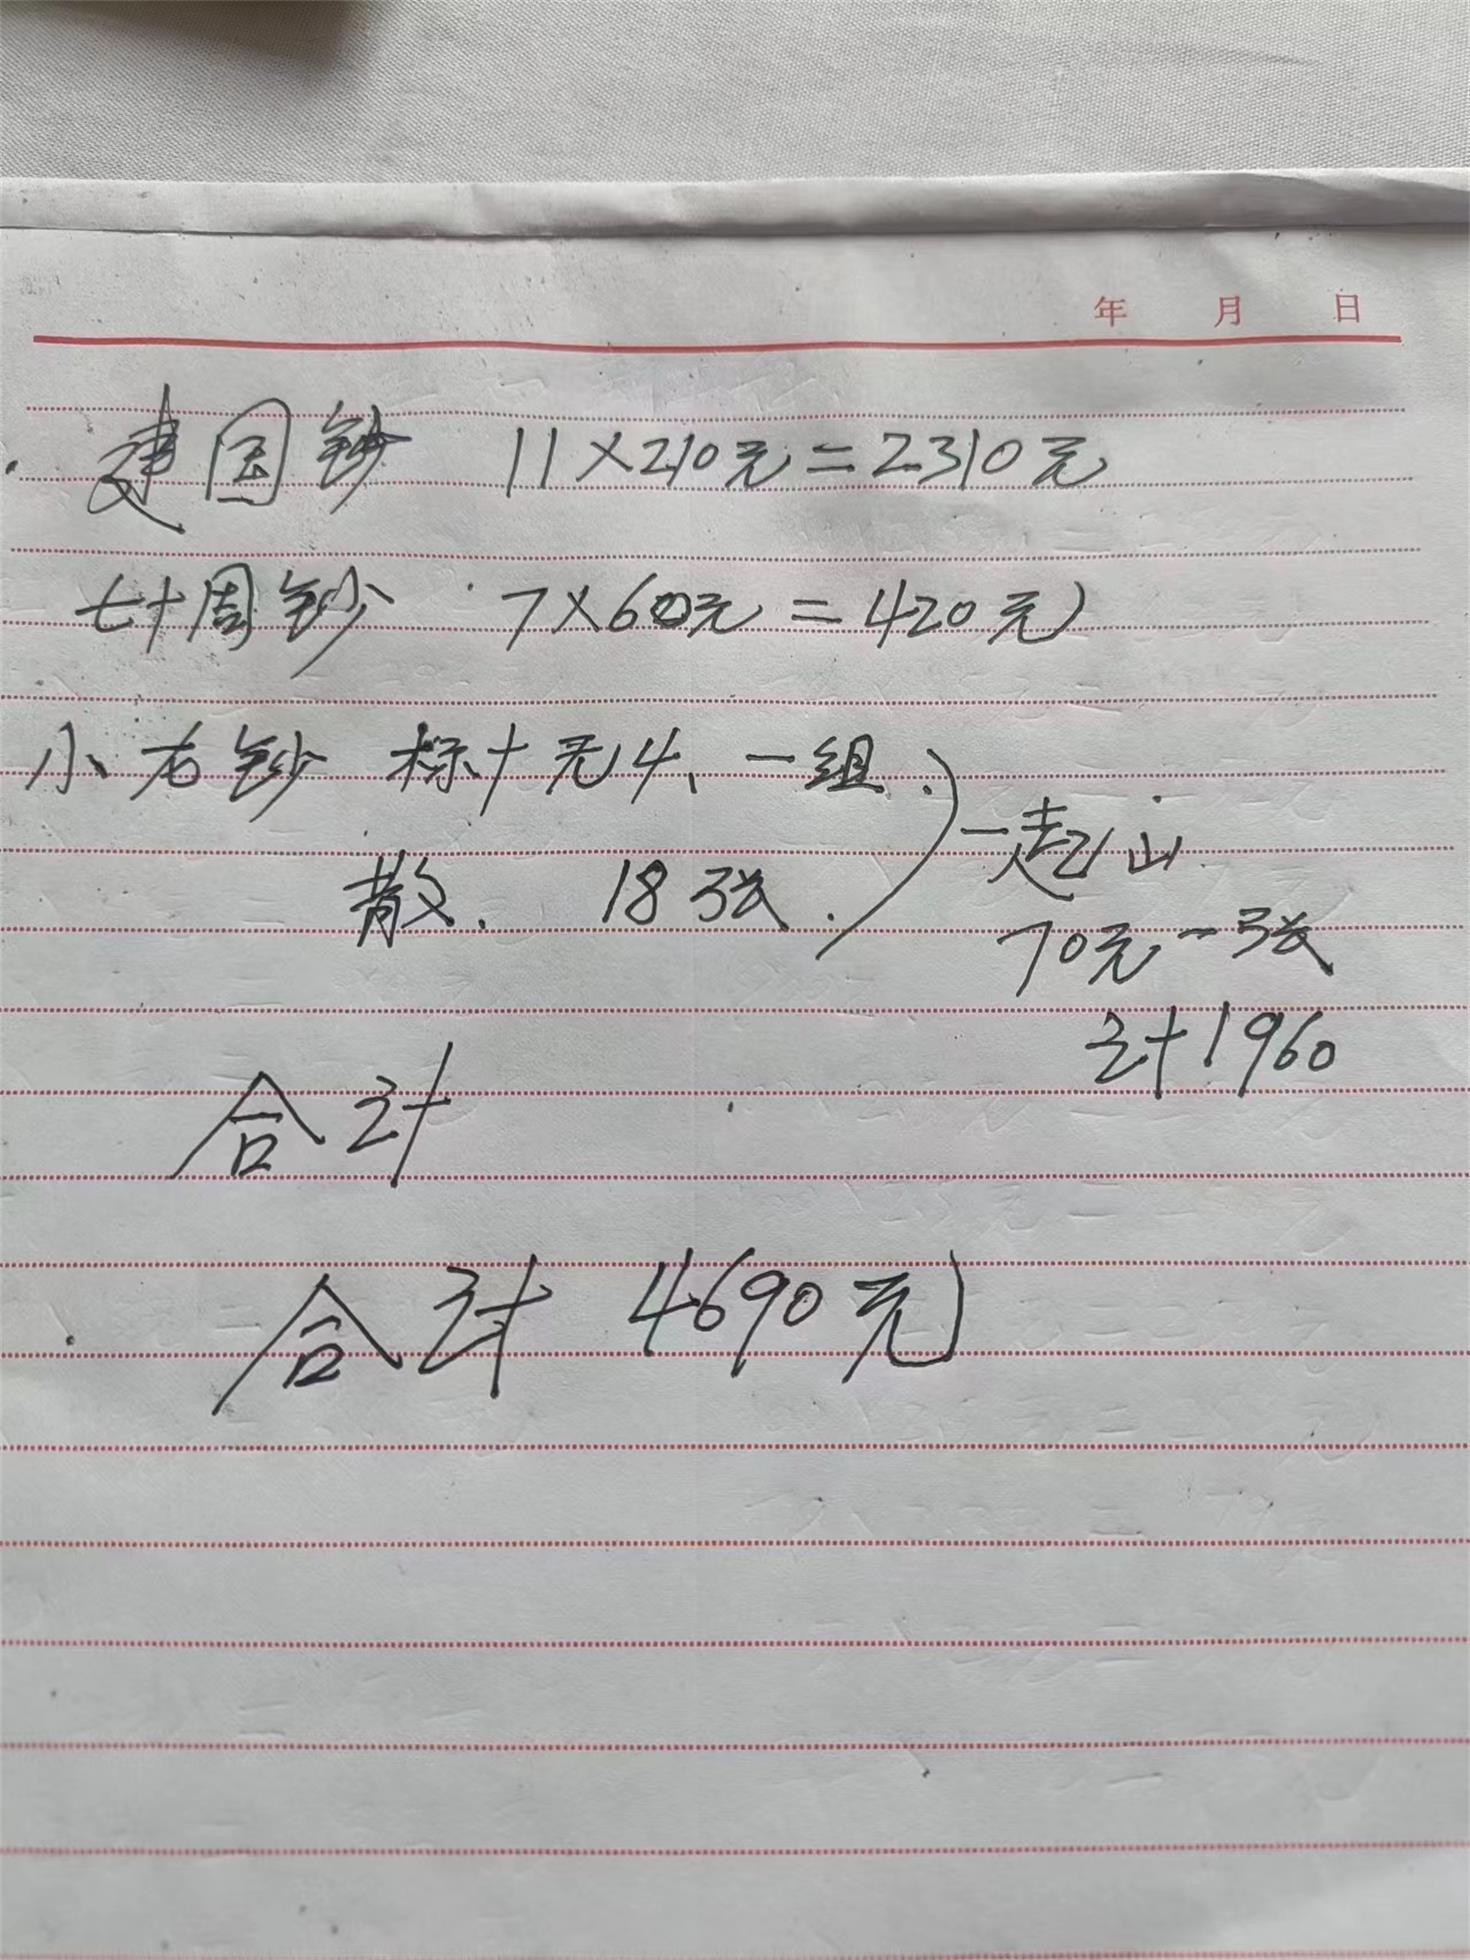 年 月 日
建国钞 11×210元=2310元
七十周钞 7×60元=420元
小龙钞 标十无4、一组.
散. 18张.
一起出
70元一张
计1960
合计
合计 4690元